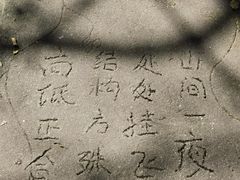 山间一夜
处处挂飞
结构方殊
高低正合